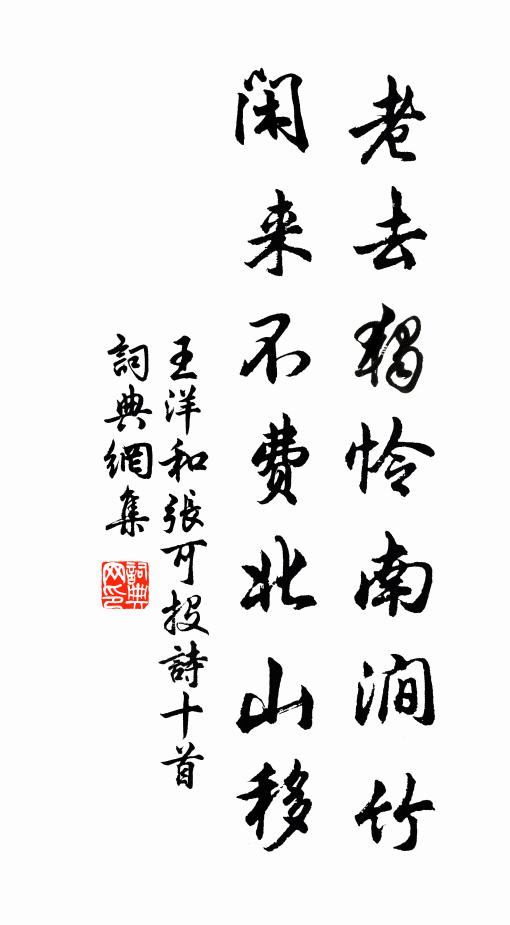 老去獨怜南澗竹
闲来不费北山移
王洋和張可投詩十首
詞典網集
詞典网印